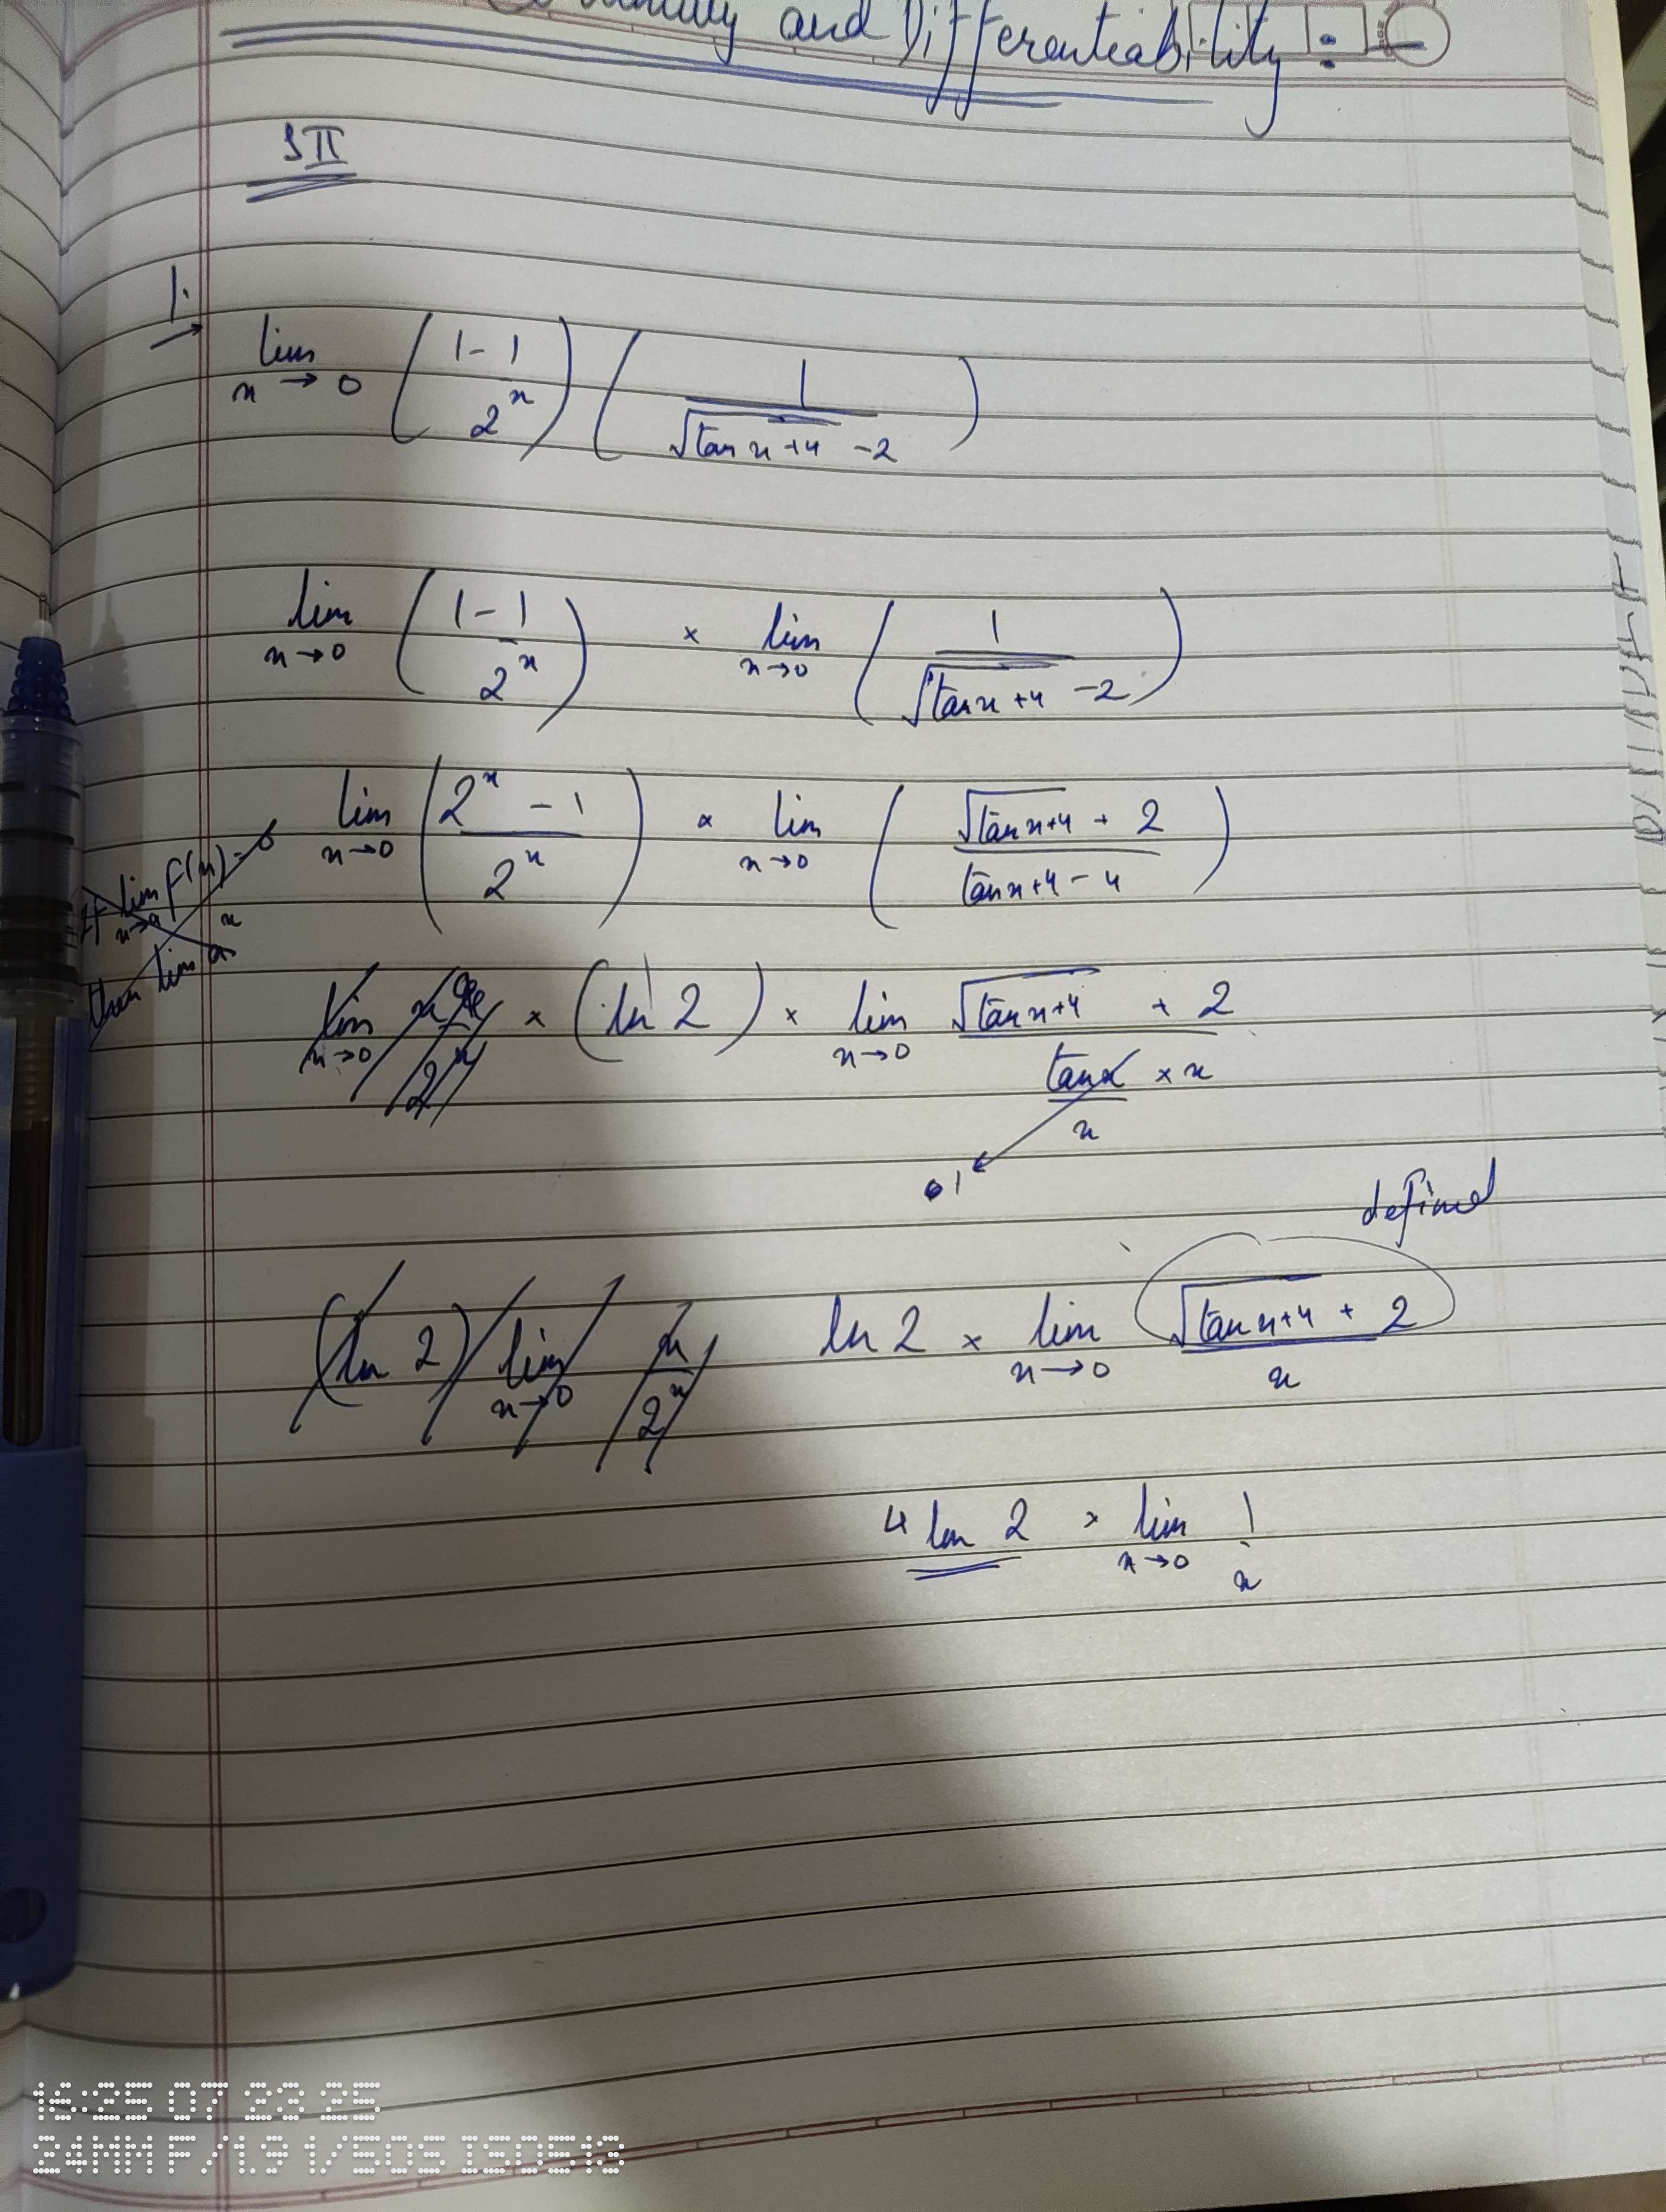 and Differentiability :
1.
lim x→0 ( 1 - 1/2^x ) ( 1/(√(tan x+4) -2) )
lim x→0 ( 1 - 1/2^x ) × lim x→0 ( 1/(√(tan x+4) -2) )
lim x→0 ( (2^x - 1)/2^x ) × lim x→0 ( (√(tan x+4) + 2)/(tan x+4 - 4) )
If lim x→a f(x) = 0
then lim a^x
lim x→0 /2^x × (ln 2) × lim x→0 (√(tan x+4) + 2)/((tan x/x) × x)
1
defined
(ln 2) lim x→0 x/2^x ln 2 × lim x→0 (√(tan x+4) + 2)/x
4 ln 2 × lim x→0 1/x
16:25 07 23 25
24MM F/1.9 1/50S ISO513